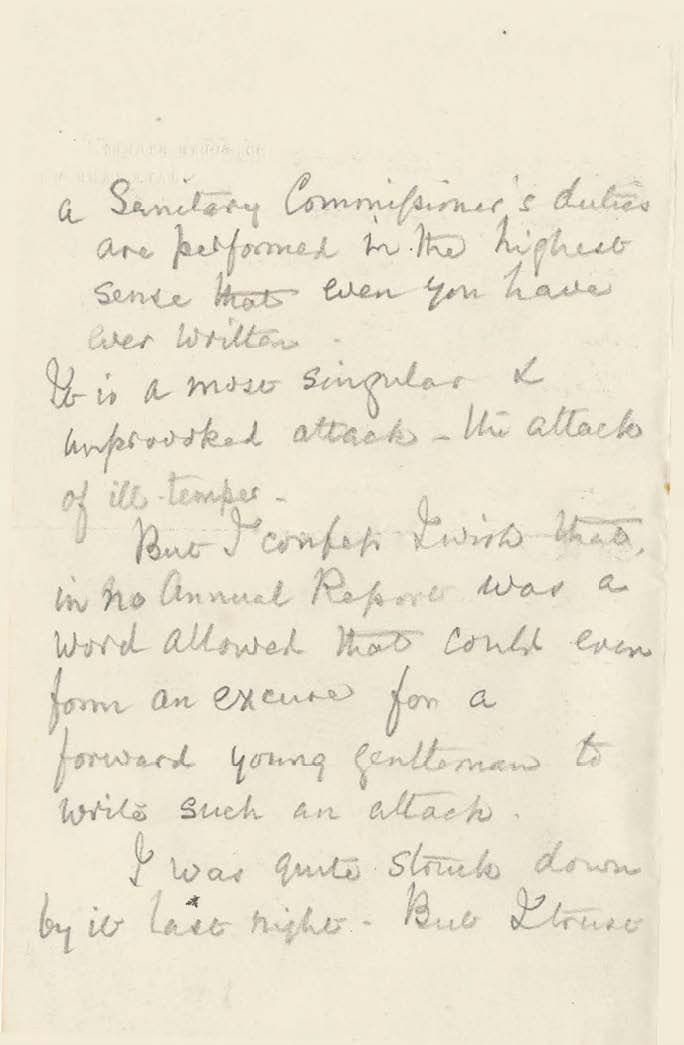 a Sanitary Commissioner's duties
are performed in the highest
sense that even you have
ever written.
It is a most singular &
unprovoked attack - the attack
of ill-temper -
But I confess I wish that,
in no Annual Report was a
word allowed that could even
form an excuse for a
forward young gentleman to
write such an attack.
I was quite struck down
by it last night. But I trust